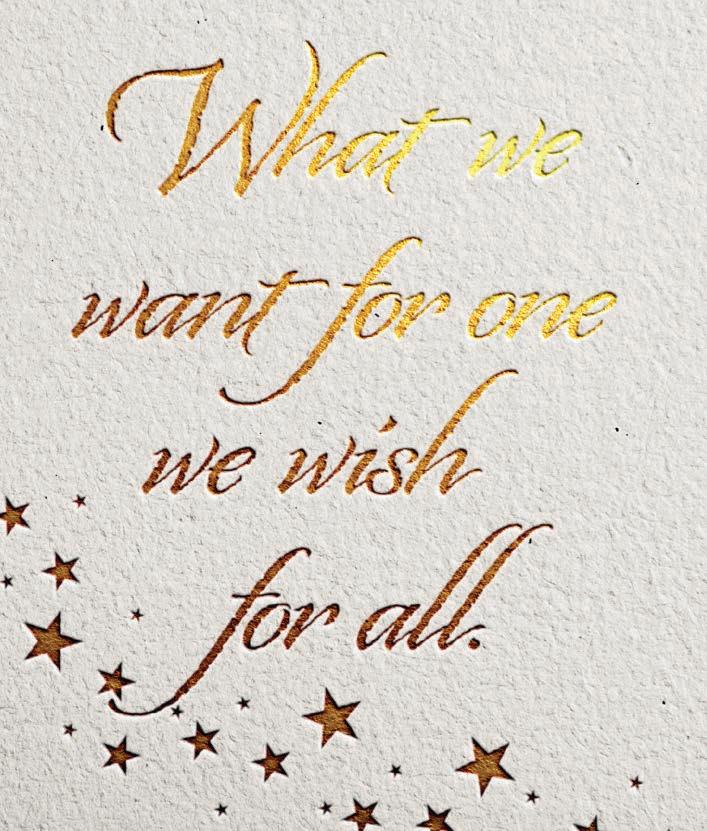 What we
want for one
we wish
for all.